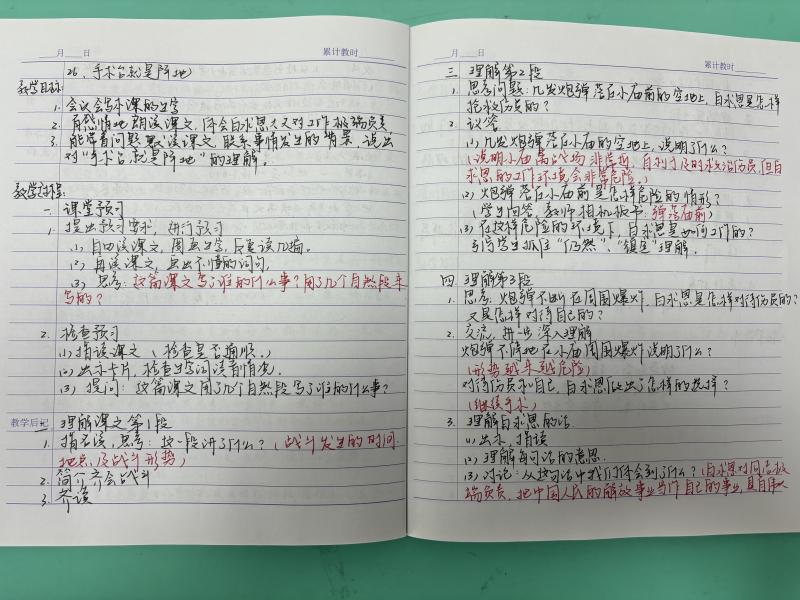 月 日
累计教时
26、手术台就是阵地
教学目标:
1. 会认会写本课的生字
2. 有感情地朗读课文,体会白求恩大夫对工作极端负责
3. 能带着问题默读课文,联系事情发生的背景,说出
对“手术台就是阵地”的理解。
教学过程:
一 课堂预习
1. 提出预习要求,进行预习
(1) 自由读课文,圈画生字,反复读几遍。
(2) 再读课文,画出不懂的词句。
(3) 思考:这篇课文写了谁的什么事?用了几个自然段来
写的?
2. 检查预习
(1) 指读课文(检查是否通顺。)
(2) 出示卡片,检查生字词读音情况。
(3) 提问:这篇课文用了几个自然段写了谁的什么事?
教学后记
二 理解课文第1段
1. 指名读,思考:这一段讲了什么?(战斗发生的时间、
地点,及战斗形势)
2. 简介齐会战斗
3. 齐读
月 日
累计教时
三 理解第2段
1. 思考问题:几发炮弹落在小庙前的空地上,白求恩是怎样
抢救伤员的?
2. 议答
(1) 几发炮弹落在小庙的空地上,说明了什么?
(说明小庙离战场非常近,有利于及时救治伤员,但白
求恩的工作环境会非常危险。)
(2) 炮弹落在小庙前是怎样危险的情形?
(学生回答,教师相机板书:弹落庙前)
(3) 在这样危险的环境下,白求恩是如何工作的?
引导学生抓住“仍然”、“镇定”理解。
四 理解第3段
1. 思考:炮弹不断在周围爆炸,白求恩是怎样对待伤员的?
又是怎样对待自己的?
2. 交流,进一步深入理解
炮弹不停地在小庙周围爆炸说明了什么?
(形势越来越危险)
对待伤员和自己,白求恩做出了怎样的选择?
(继续手术)
3. 理解白求恩的话
(1) 出示,指读
(2) 理解每句话的意思
(3) 讨论:从这句话中我们体会到了什么?(白求恩对同志极
端负责,把中国人民的解放事业当作自己的事业,具有